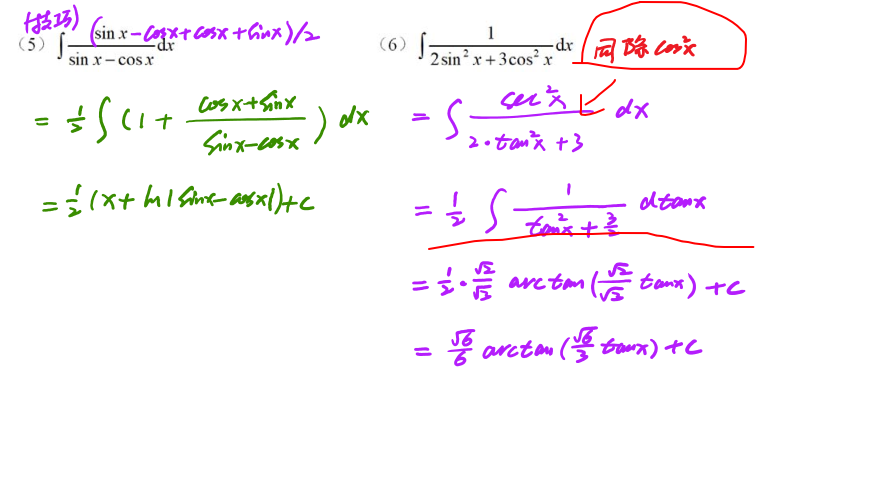 (技巧)
(5) ∫ (sin x - cosx + cosx + sinx)/2 / (sin x − cos x) dx
= 1/2 ∫ (1 + (cosx + sinx)/(sinx - cosx)) dx
= 1/2 (x + ln|sinx - cosx|) + c
(6) ∫ 1/(2sin²x + 3cos²x) dx 同除cos²x
= ∫ sec²x/(2·tan²x + 3) dx
= 1/2 ∫ 1/(tan²x + 3/2) dtanx
= 1/2 · √2/√2 arctan(√2/√2 tanx) + c
= √6/6 arctan(√6/3 tanx) + c